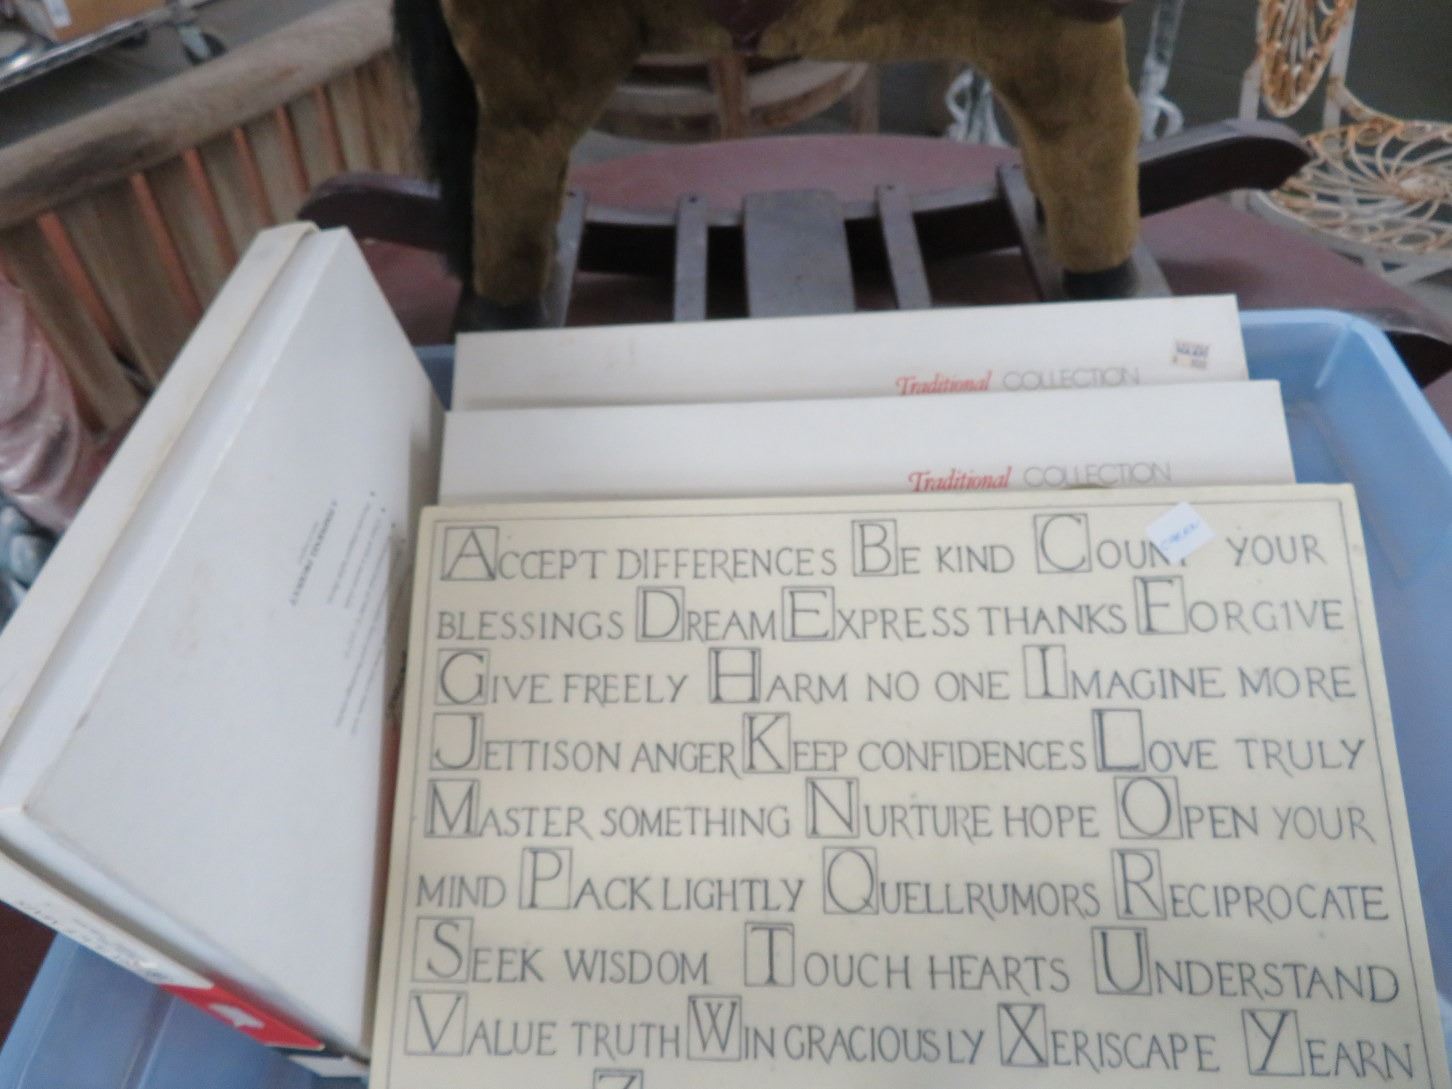 Traditional COLLECTION
Traditional COLLECTION
ACCEPT DIFFERENCES BE KIND COUNT YOUR
BLESSINGS DREAM EXPRESS THANKS FORGIVE
GIVE FREELY HARM NO ONE IMAGINE MORE
JETTISON ANGER KEEP CONFIDENCES LOVE TRULY
MASTER SOMETHING NURTURE HOPE OPEN YOUR
MIND PACK LIGHTLY QUELL RUMORS RECIPROCATE
SEEK WISDOM TOUCH HEARTS UNDERSTAND
VALUE TRUTH WIN GRACIOUSLY XERISCAPE YEARN
Z